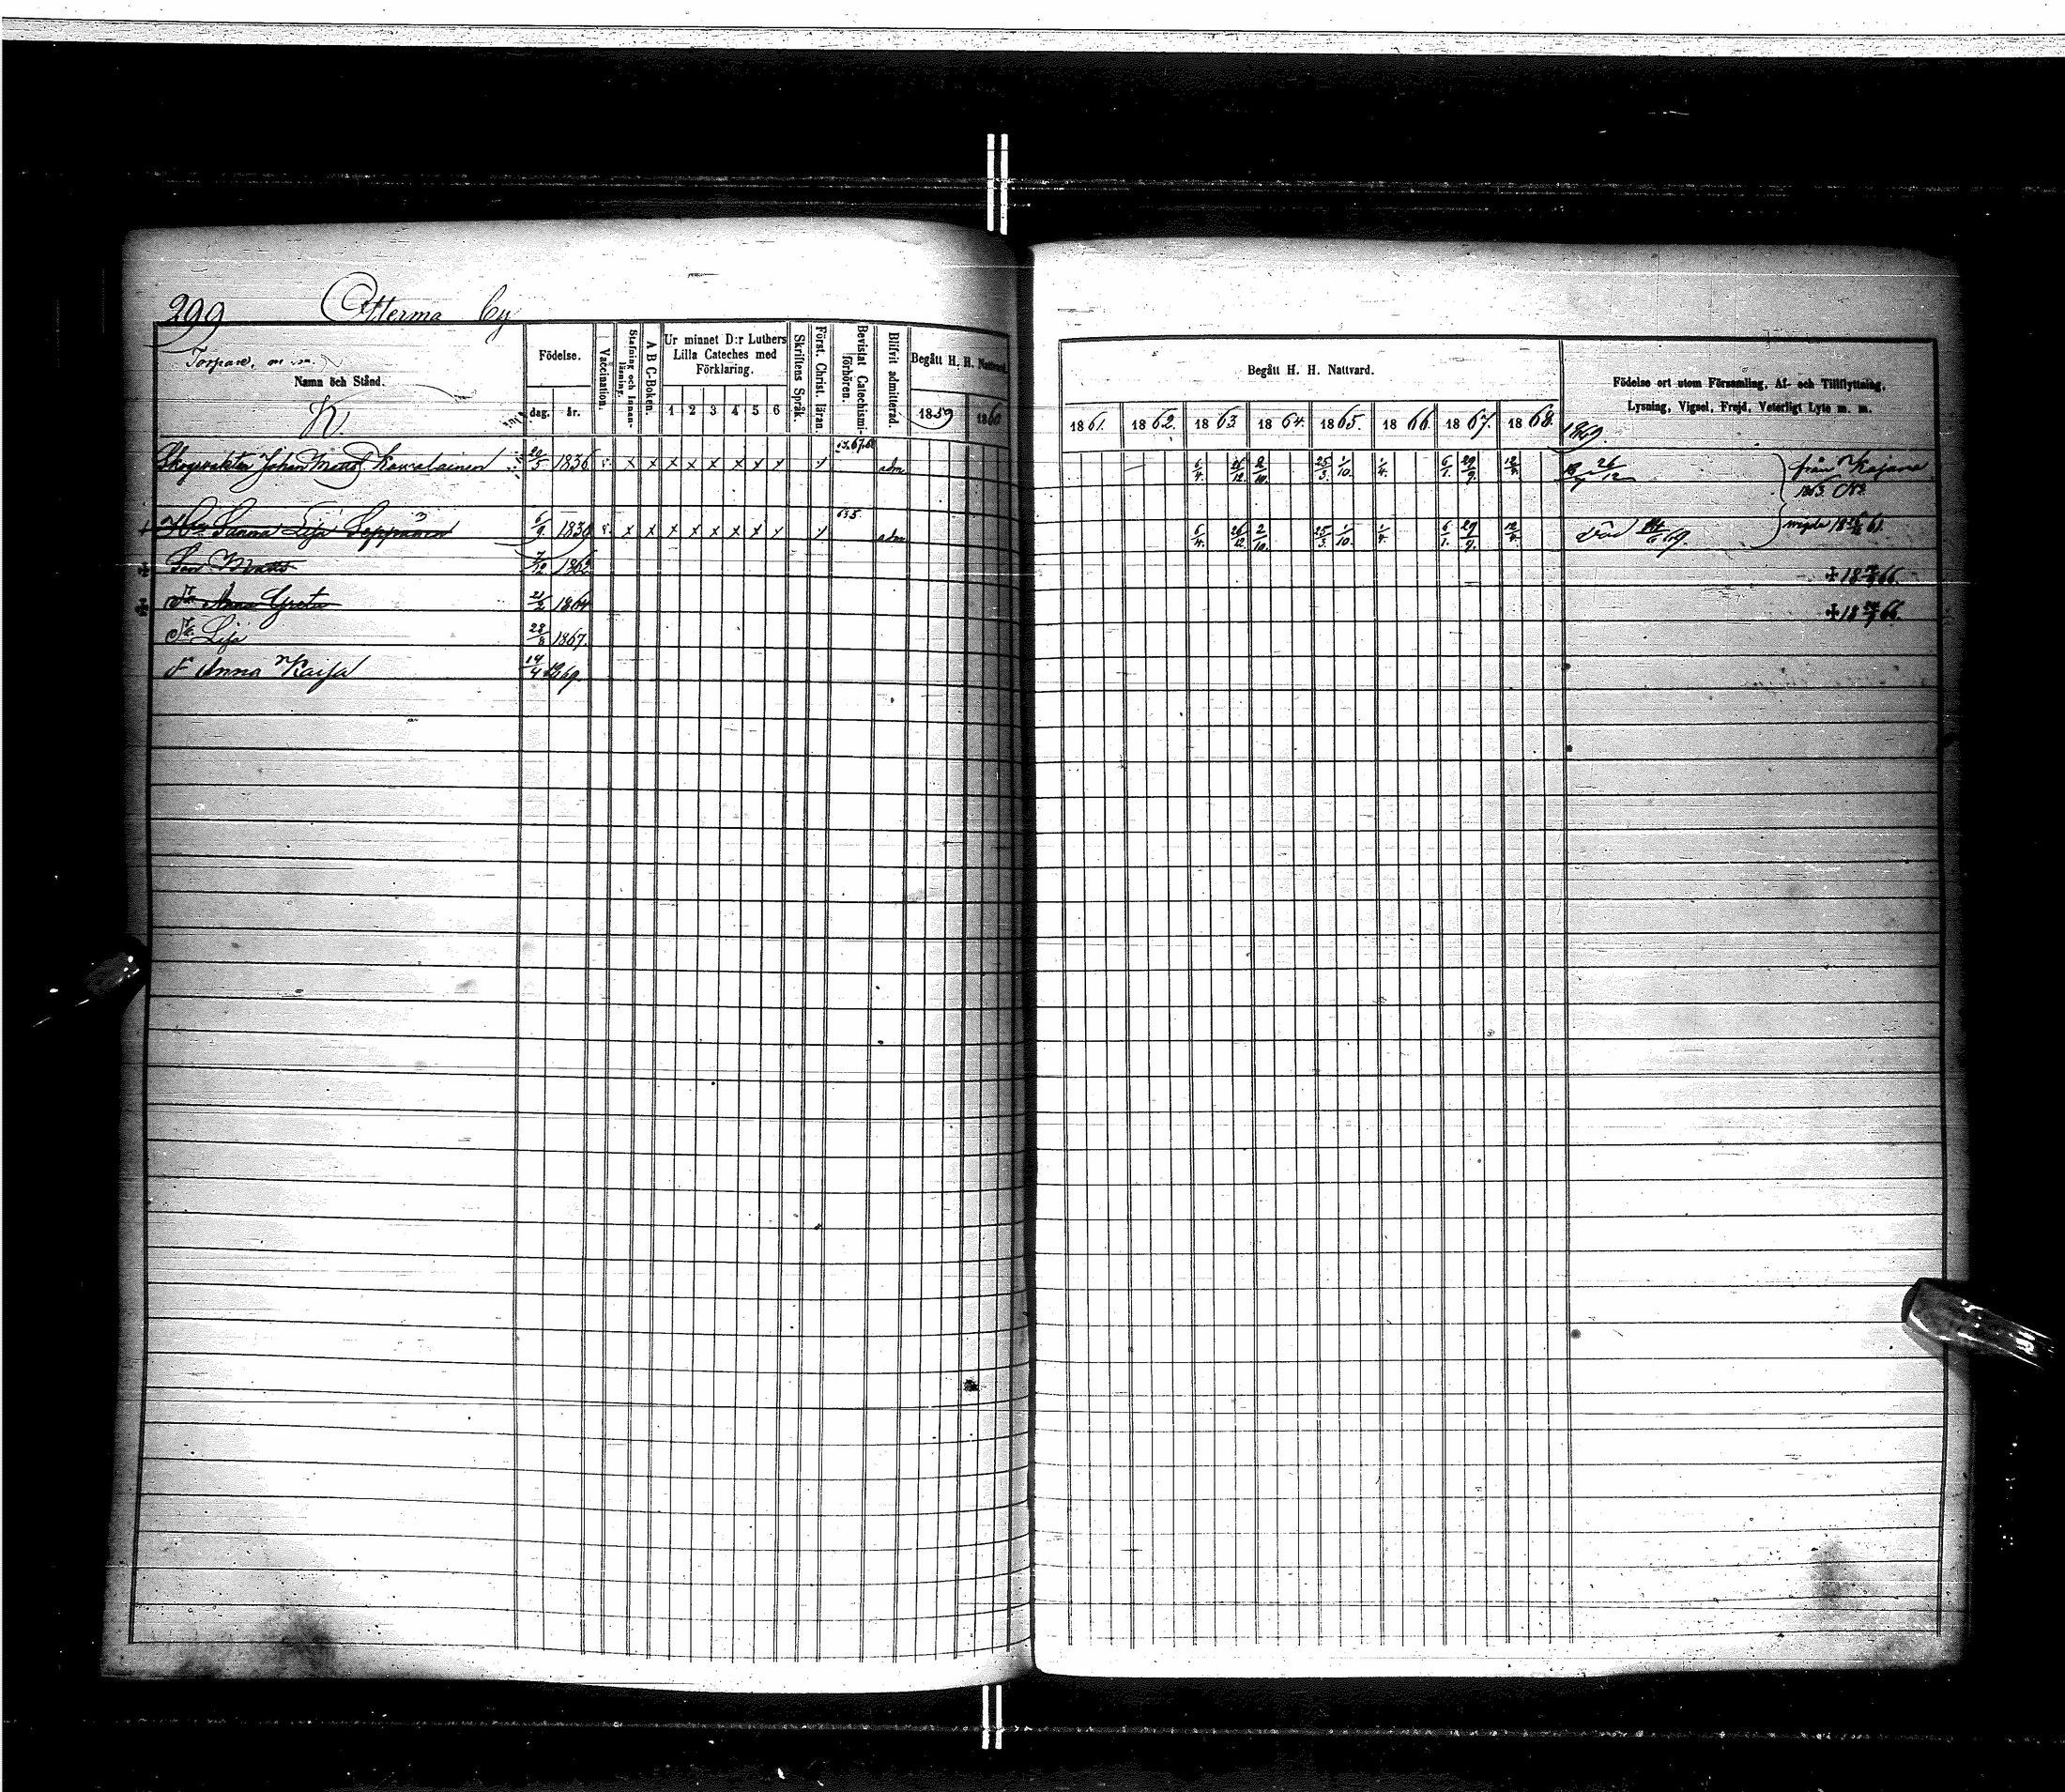 299 Otterma by
Torpare, m. m.
Namn och Stånd.
K.
Födelse.
dag. år.
Vaccination.
Stafning och Innan-läsning.
A B C-Boken.
Ur minnet D:r Luthers
Lilla Cateches med
Förklaring.
1 2 3 4 5 6
Skriftens Språk.
Först. Christ. läran.
Bevistat Catechismi-förhören.
Blifvit admitterad.
Begått H. H. Nattvard.
1859 1860
Begått H. H. Nattvard.
1861. 1862. 1863 1864. 1865. 1866. 1867. 1868.
Födelse ort utom Församling, Af- och Tillflyttning,
Lysning, Vigsel, Frejd, Veterligt Lyte m. m.
1869.
Skogvakten Johan Matts Kowalainen 20/5 1836 x x x x x x x x adm 6/4. 26/12. 2/10. 25/3. 1/10. 1/4. 6/1. 29/9. 12/4. 26/12 från Kajana
Hu Sanna Lisa Seppänen 6/9 1830 x x x x x x x x adm 6/4. 26/12. 2/10. 25/3. 1/10. 1/4. 6/1. 29/9. 12/4. Död 69. vigda 61.
Son Matts 7/12 1862 18 66.
Dr Anna Greta 21/2 1864 18 66.
Dr Lisa 28/8 1867.
F Anna Kaisa 14/4 1869.